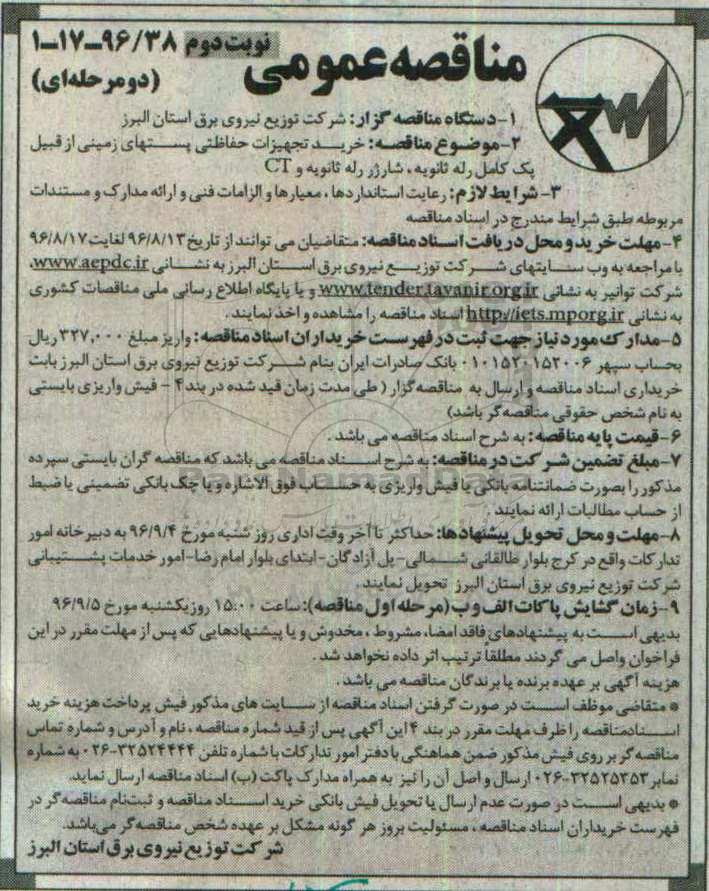 مناقصه عمومی
نوبت دوم ۹۶/۳۸-۱۷-۱
(دو مرحله‌ای)
۱- دستگاه مناقصه گزار: شرکت توزیع نیروی برق استان البرز
۲- موضوع مناقصه: خرید تجهیزات حفاظتی پستهای زمینی از قبیل
پک کامل رله ثانویه ، شارژر رله ثانویه و CT
۳- شرایط لازم: رعایت استانداردها ، معیارها و الزامات فنی و ارائه مدارک و مستندات
مربوطه طبق شرایط مندرج در اسناد مناقصه
۴- مهلت خرید و محل دریافت اسناد مناقصه: متقاضیان می توانند از تاریخ ۹۶/۸/۱۳ لغایت ۹۶/۸/۱۷
با مراجعه به وب سایتهای شرکت توزیع نیروی برق استان البرز به نشانی www.aepdc.ir،
شرکت توانیر به نشانی www.tender.tavanir.org.ir و یا پایگاه اطلاع رسانی ملی مناقصات کشوری
به نشانی http://iets.mporg.ir اسناد مناقصه را مشاهده و اخذ نمایند .
۵- مدارک مورد نیاز جهت ثبت در فهرست خریداران اسناد مناقصه: واریز مبلغ ۳۲۷,۰۰۰ ریال
بحساب سپهر بانک صادرات ایران بنام شرکت توزیع نیروی برق استان البرز بابت
خریداری اسناد مناقصه و ارسال به مناقصه گزار ( طی مدت زمان قید شده در بند ۴ - فیش واریزی بایستی
به نام شخص حقوقی مناقصه گر باشد)
۶- قیمت پایه مناقصه: به شرح اسناد مناقصه می باشد .
۷- مبلغ تضمین شرکت در مناقصه: به شرح اسناد مناقصه می باشد که مناقصه گران بایستی سپرده
مذکور را بصورت ضمانتنامه بانکی یا فیش واریزی به حساب فوق الاشاره و یا چک بانکی تضمینی یا ضبط
از حساب مطالبات ارائه نمایند .
۸- مهلت و محل تحویل پیشنهادها: حداکثر تا آخر وقت اداری روز شنبه مورخ ۹۶/۹/۴ به دبیرخانه امور
تدارکات واقع در کرج بلوار طالقانی شمالی- پل آزادگان- ابتدای بلوار امام رضا- امور خدمات پشتیبانی
شرکت توزیع نیروی برق استان البرز تحویل نمایند .
۹- زمان گشایش پاکات الف و ب (مرحله اول مناقصه): ساعت ۱۵:۰۰ روز یکشنبه مورخ ۹۶/۹/۵
بدیهی است به پیشنهادهای فاقد امضا، مشروط ، مخدوش و یا پیشنهادهایی که پس از مهلت مقرر در این
فراخوان واصل می گردند مطلقا ترتیب اثر داده نخواهد شد .
هزینه آگهی بر عهده برنده یا برندگان مناقصه می باشد .
* متقاضی موظف است در صورت گرفتن اسناد مناقصه از سایت های مذکور فیش پرداخت هزینه خرید
اسناد مناقصه را ظرف مهلت مقرر در بند ۴ این آگهی پس از قید شماره مناقصه ، نام و آدرس و شماره تماس
مناقصه گر بر روی فیش مذکور ضمن هماهنگی با دفتر امور تدارکات با شماره تلفن ۳۲۵۲۴۴۴۴-۰۲۶ به شماره
نمابر ۳۲۵۲۵۳۵۳-۰۲۶ ارسال و اصل آن را نیز به همراه مدارک پاکت (ب) اسناد مناقصه ارسال نماید.
* بدیهی است در صورت عدم ارسال یا تحویل فیش بانکی خرید اسناد مناقصه و ثبت‌نام مناقصه گر در
فهرست خریداران اسناد مناقصه ، مسئولیت بروز هر گونه مشکل بر عهده شخص مناقصه گر می‌باشد.
شرکت توزیع نیروی برق استان البرز